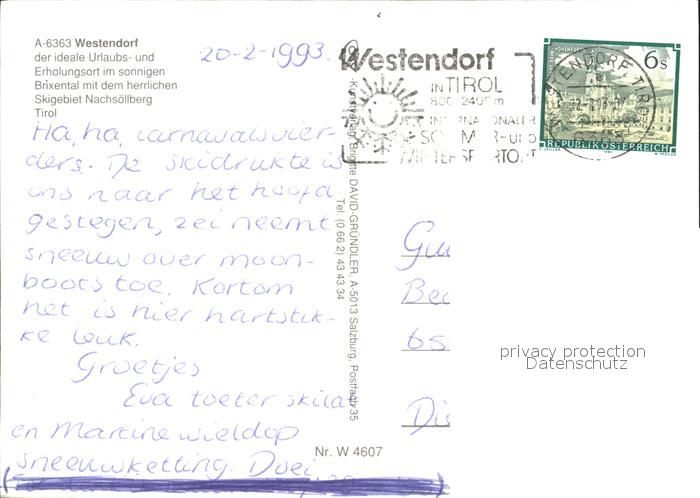 A-6363 Westendorf
der ideale Urlaubs- und
Erholungsort im sonnigen
Brixental mit dem herrlichen
Skigebiet Nachsöllberg
Tirol
20-2-1993.
Ha, ha, carnavalsvier-
ders. De skidrukte is
ons naar het hoofd
gestegen, zei neemt
sneeuw over moon-
boots toe. Kortom
het is hier hartstik-
ke leuk.
Groetjes
Eva toeter skilat
en Martine wieldop
sneeuwketting. Doei
Kunstverlag Brigitte DAVID-GRÜNDLER, A-5013 Salzburg, Postfach 35
Tel. (0 66 2) 43 43 34
Nr. W 4607
Westendorf
IN TIROL
800-2400m
INTERNATIONALER
WINTERSPORTORT
WESTENDORF TIROL
6 S
REPUBLIK ÖSTERREICH
Gu
Bee
65
Di
privacy protection
Datenschutz